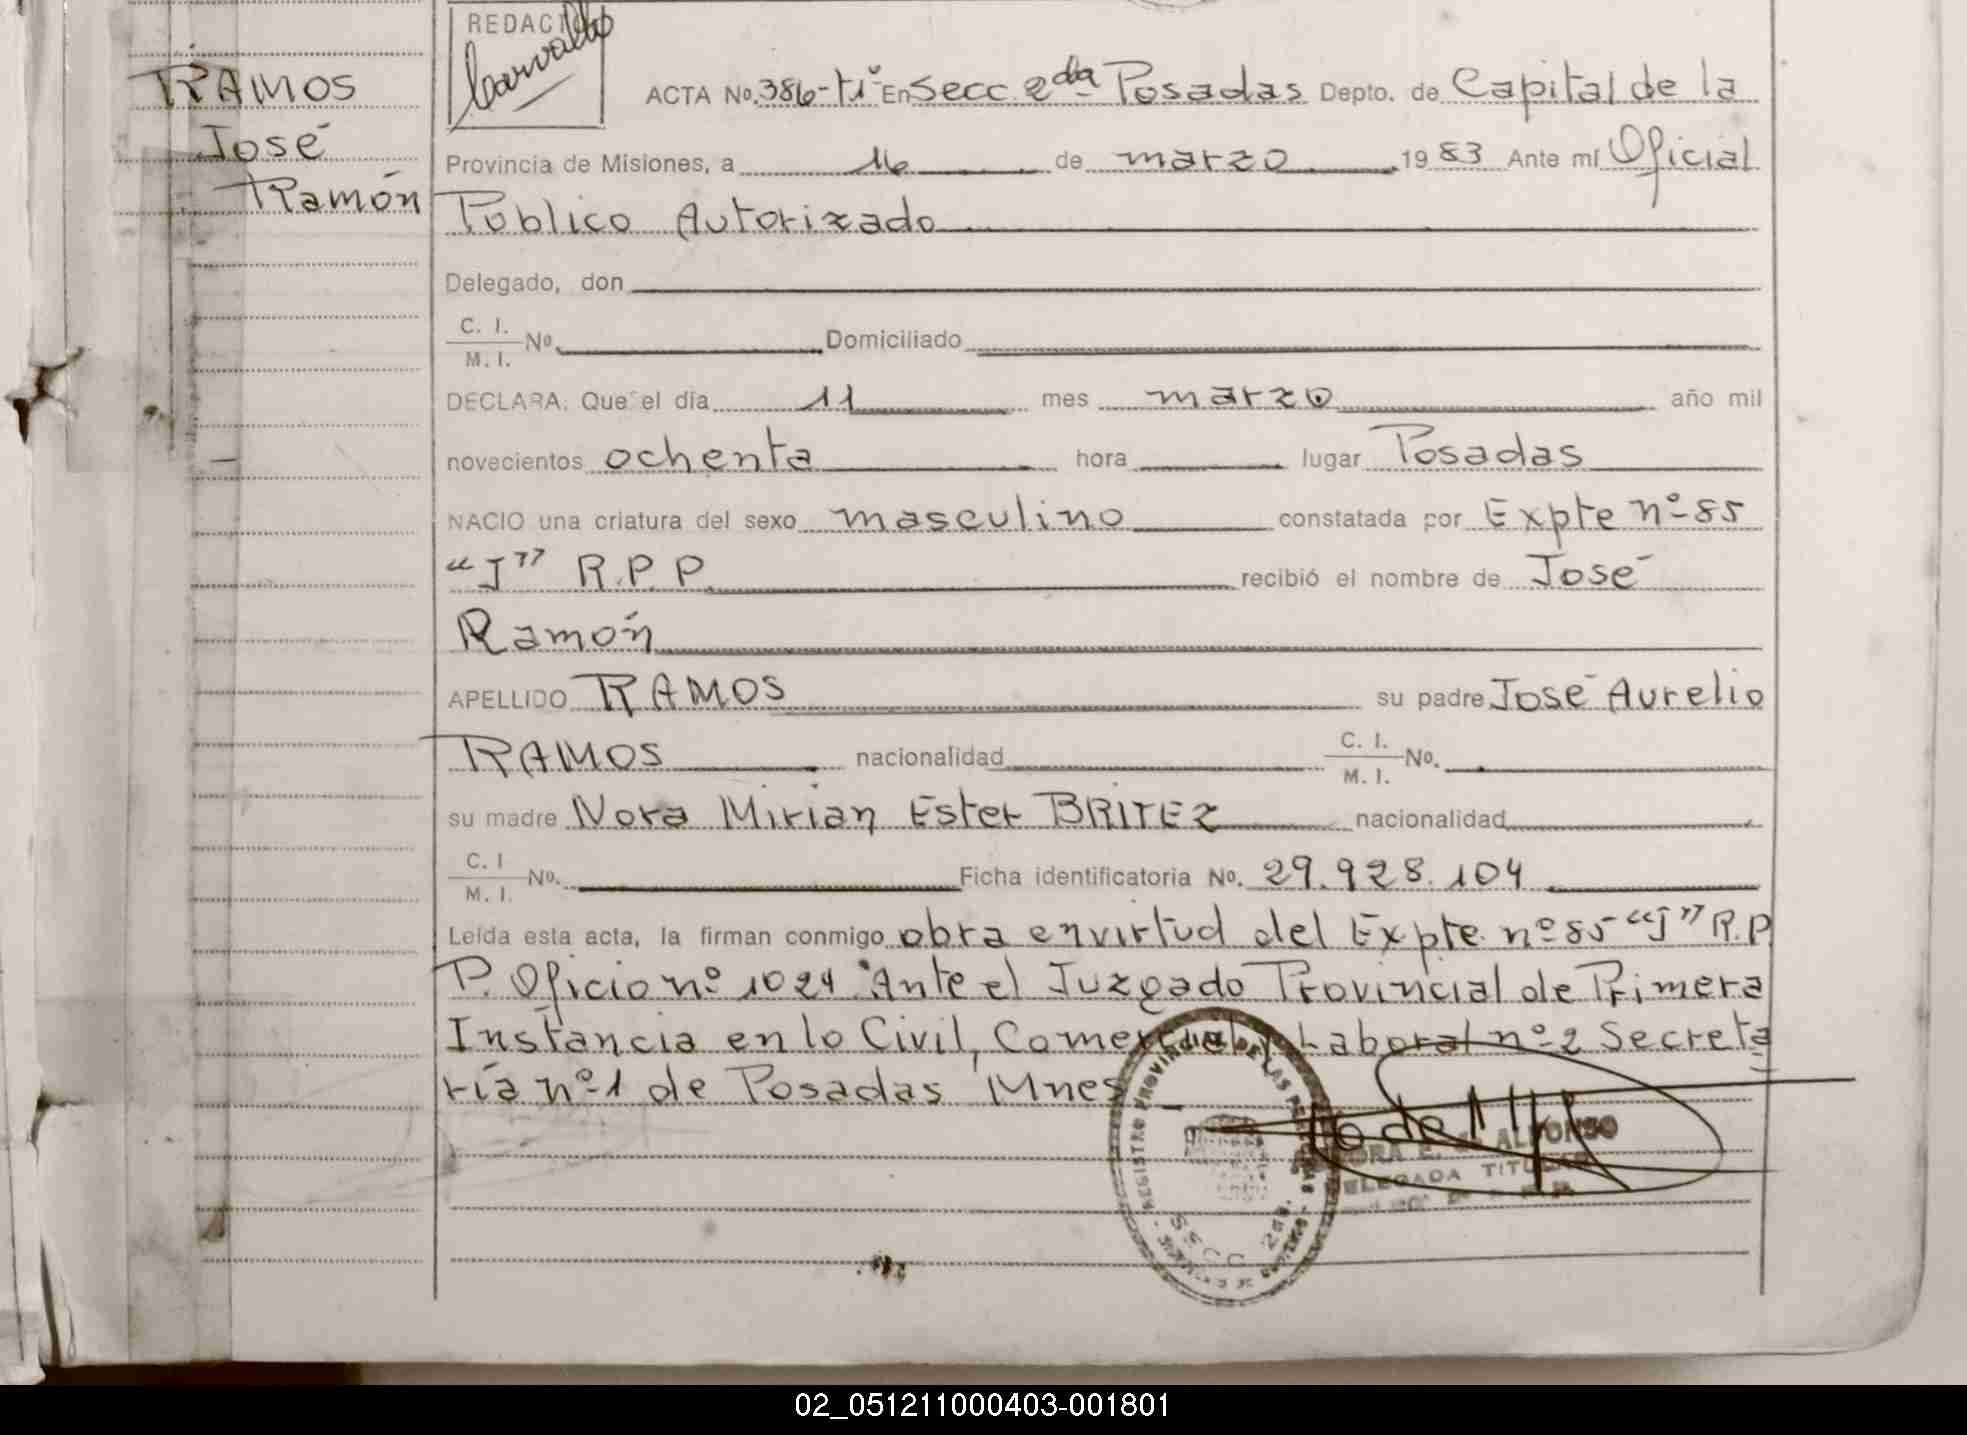 RAMOS
José
Ramón
REDACTO
Carvallo
ACTA No. 386-tiº En Secc. 2da Posadas Depto. de Capital de la
Provincia de Misiones, a 16 de marzo 1983 Ante mí Oficial
Público Autorizado
Delegado, don
C. I.
M. I. No. Domiciliado
DECLARA: Que el día 11 mes marzo año mil
novecientos ochenta hora lugar Posadas
NACIO una criatura del sexo masculino constatada por Expte nº 85
"J" R.P.P. recibió el nombre de José
Ramón
APELLIDO RAMOS su padre José Aurelio
RAMOS nacionalidad C. I. M. I. No.
su madre Nora Mirian Ester BRITEZ nacionalidad
C. I M. I. No. Ficha identificatoria No. 29.928.104
Leída esta acta, la firman conmigo obra en virtud del Expte. nº 85 "J" R.P.
P. Oficio nº 1024 Ante el Juzgado Provincial de Primera
Instancia en lo Civil, Comercial y Laboral nº 2 Secreta
ría nº 1 de Posadas Mnes
REGISTRO PROVINCIAL DE LAS PERSONAS
SECC. 2da.
ALFONSO
DELEGADA TITULAR
02_051211000403-001801